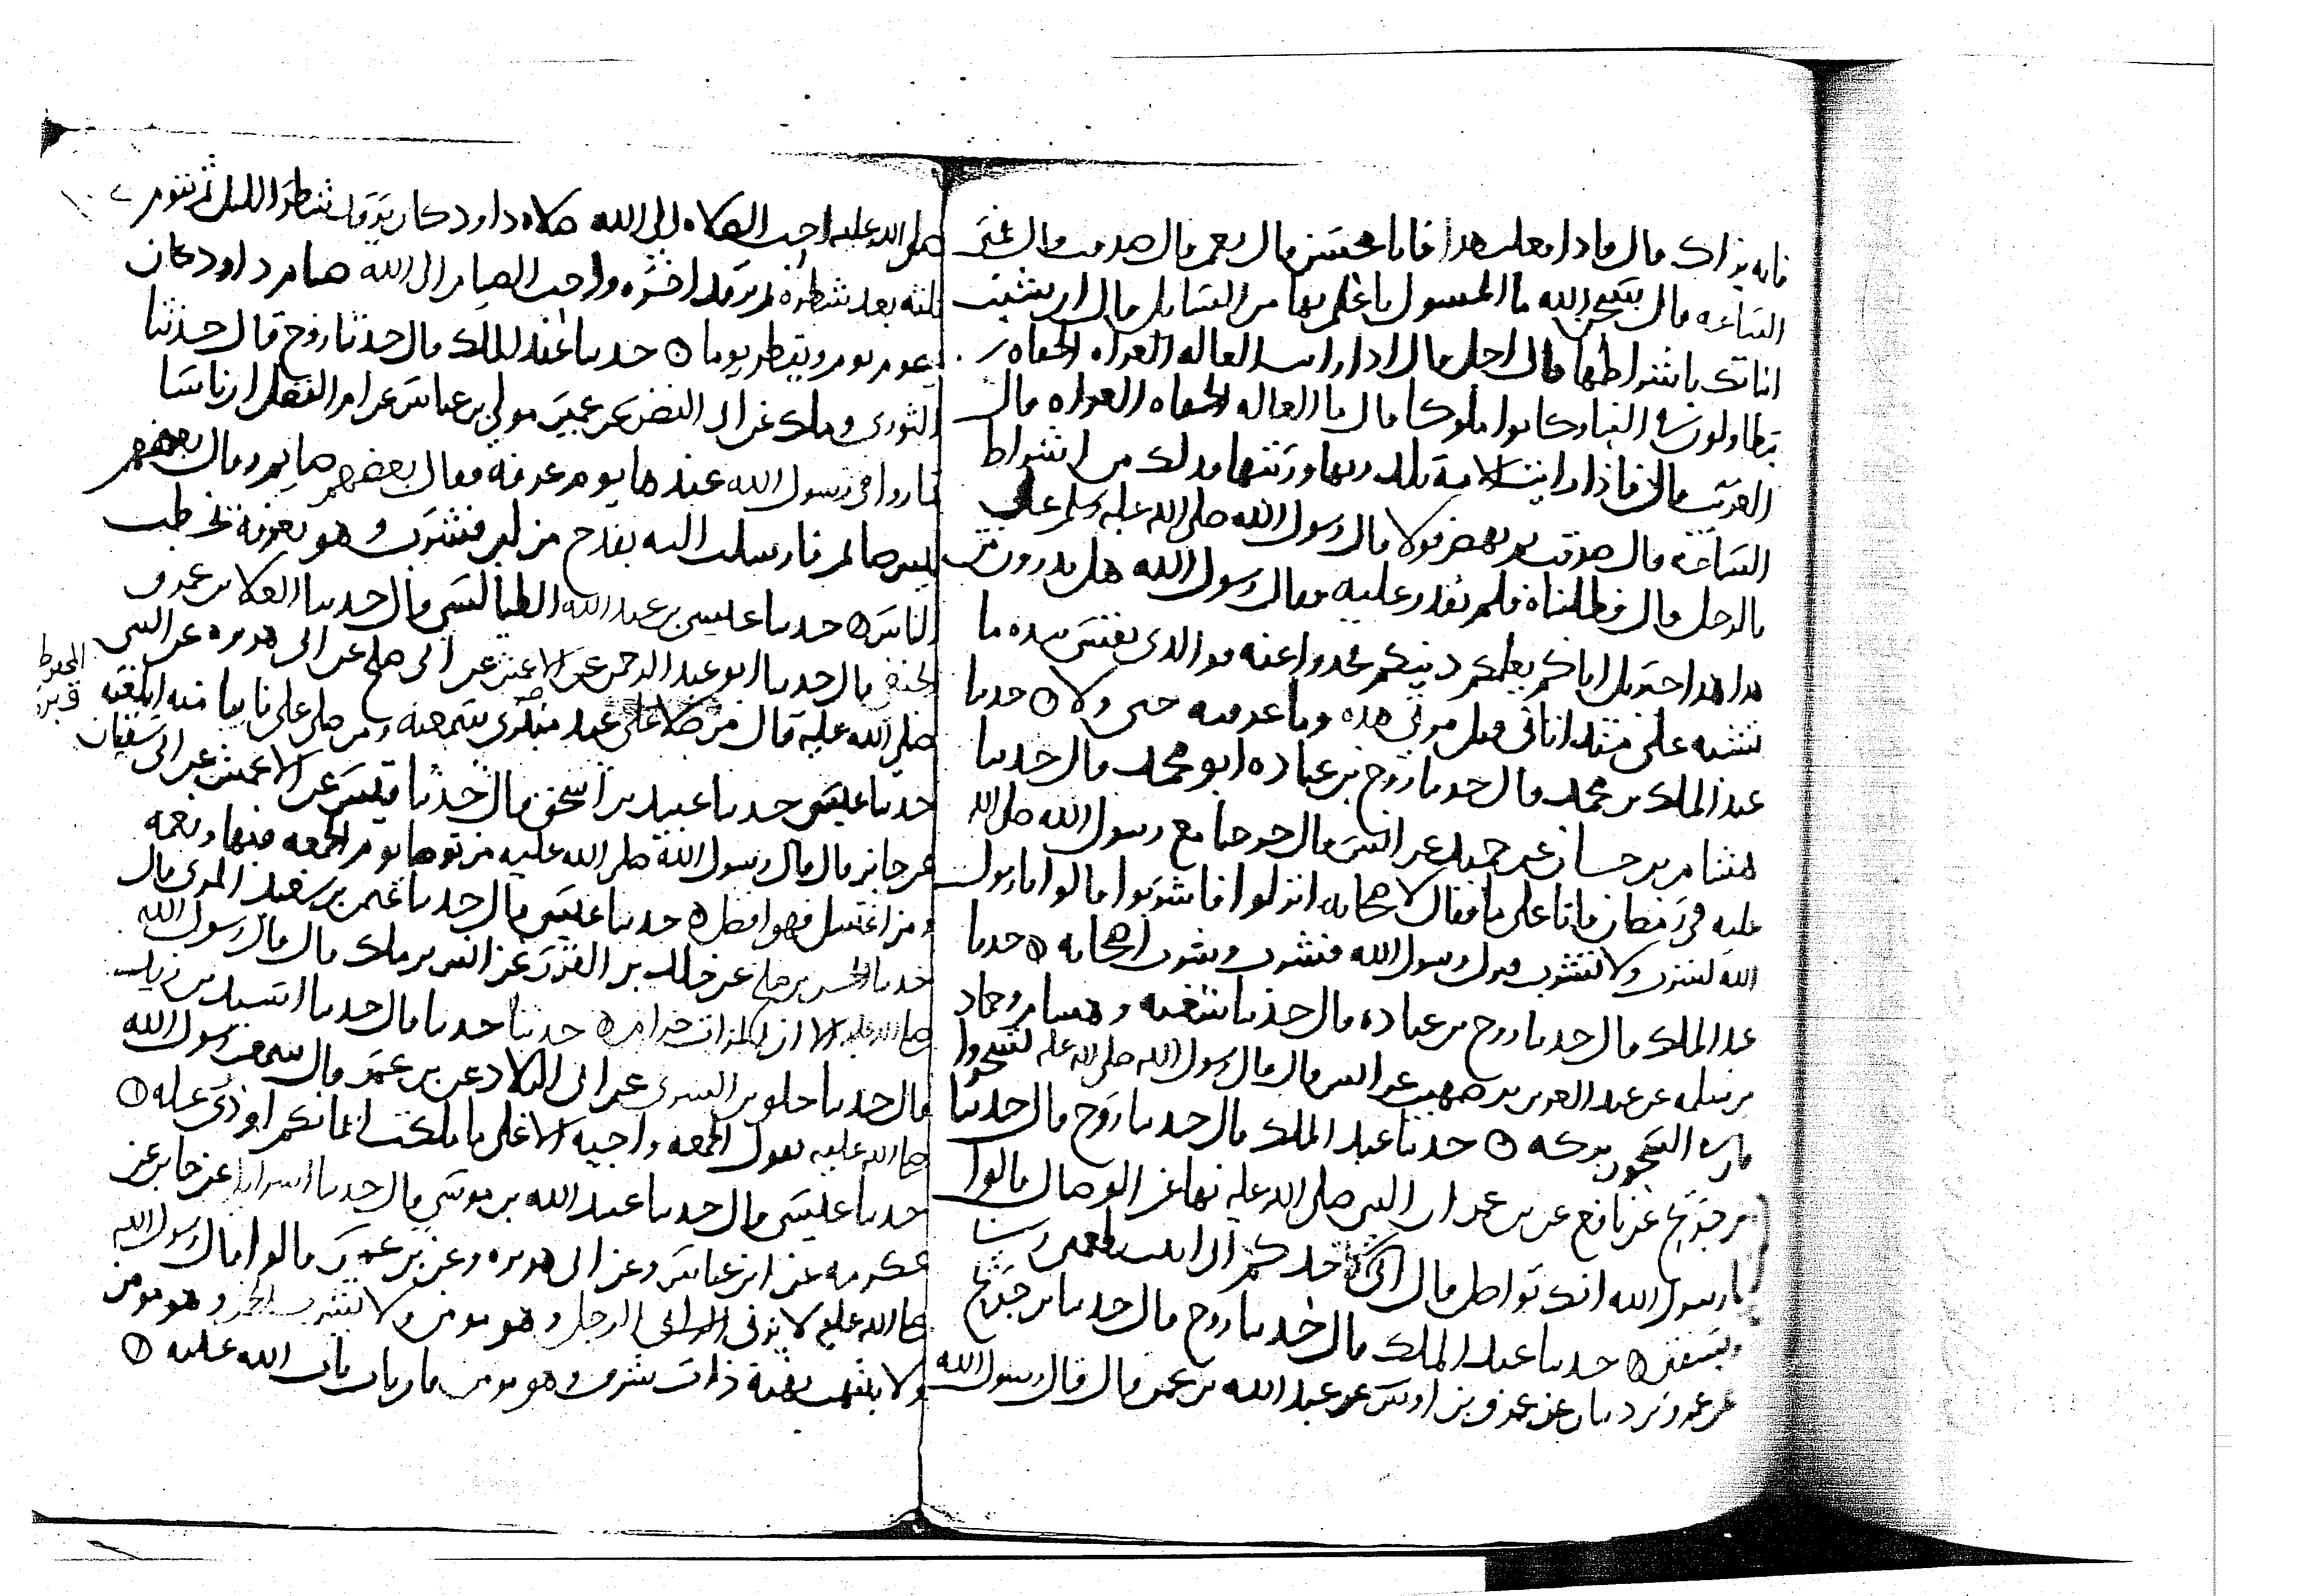 فانه يراك قال فاذا فعلت هذا فانا محسن قال نعم قال صدقت قال فمتى
الساعه قال سبحن الله ما المسول باعلم بها من السايل قال ان شيت
اناتك باشراطها قال اجل قال اذا رايت العاله العراه الحفاه
يتطاولون في البنا وكانوا ملوكا قال ما العاله الحفاه العراه قال
العريب قال فاذا رايت الامة تلد ربها وربتها فذلك من اشراط
الساعة قال صدقت ثم نهض فولا قال رسول الله صلى الله عليه وسلم علي
بالرجل قال فطلبناه فلم نقدر عليه فقال رسول الله هل تدرون من
هذا هذا جبريل اتاكم يعلمكم دينكم فخذوا عنه فوالذي نفسي بيده ما
شبه علي منذ اتاني قبل مرتي هذه وما عرفته حتى ولا حدثنا
عبد الملك بن محمد قال حدثنا روح بن عباده ابو محمد قال حدثنا
هشام بن حسان عن حميد عن انس قال خرجنا مع رسول الله صلى الله
عليه في رمضان فاتا على ما فقال لاصحابه انزلوا فاشربوا قالوا يا رسول
الله نشرب ولا تشرب فنزل رسول الله فشرب وشرب اصحابه حدثنا
عبد الملك قال حدثنا روح بن عباده قال حدثنا شعبه وهشام وحماد
بن سلمه عن عبد العزيز بن صهيب عن انس قال قال رسول الله صلى الله عليه تسحروا
فان في السحور بركه حدثنا عبد الملك قال حدثنا روح قال حدثنا
بن جريج عن نافع عن بن عمر ان النبي صلى الله عليه نها عن الوصال قالوا
يا رسول الله انك تواصل قال اني لست كاحدكم اني ابيت يطعمني ربي
ويسقين حدثنا عبد الملك قال حدثنا روح قال حدثنا بن جريج
عن عمرو بن دينار عن عمرو بن اوس عن عبد الله بن عمر قال قال رسول الله
صلى الله عليه احب الصلاه الى الله صلاه داود كان يرقد شطر الليل ثم يقوم
ثلثه بعد شطره ثم يرقد اخره واحب الصيام الى الله صيام داود كان
يصوم يوم ويفطر يوما حدثنا عبد الملك قال حدثنا روح قال حدثنا
الثوري وملك عن ابي النضر عن عمير مولى بن عباس عن ام الفضل ان ناسا
تماروا في رسول الله عندها يوم عرفة فقال بعضهم صايم وقال بعضهم
ليس صايم فارسلت اليه بقدح من لبن فشرب وهو بعرفة يخطب
الناس حدثنا عيسى بن عبد الله الطيالسي قال حدثنا العلا بن عمرو
الحنفي قال حدثنا ابو عبد الرحمن عن الاعمش عن ابي صلح عن ابي هريره عن النبي
صلى الله عليه قال من صلا علي عند قبري سمعته ومن صلى علي نايبا منه ابلغته
المحفوظ
قبري
حدثنا عيسى حدثنا عبيد بن اسحق قال حدثنا قيس عن الاعمش عن ابي سفيان
عن جابر قال قال رسول الله صلى الله عليه من توضا يوم الجمعه فبها ونعمه
ومن اغتسل فهو افضل حدثنا عيسى قال حدثنا عثمن بن سعيد المري قال
حدثنا الحسن بن صلح عن خلد بن الفزر عن انس بن ملك قال قال رسول الله
صلى الله عليه الا ان المزات حرام حدثنا حدثنا قال حدثنا اسيد بن زيد
قال حدثنا حلو بن السري عن ابي البلاد عن بن عمر قال سمعت رسول الله
صلى الله عليه يقول الجمعه واجبه الا على ما ملكت ايمانكم او ذي عله
حدثنا عيسى قال حدثنا عبيد الله بن موسى قال حدثنا اسرايل عن جابر عن
عكرمه عن ابن عباس وعن ابي هريره وعن بن عمر قالوا قال رسول الله
صلى الله عليه لا يزني الزاني الرجل وهو مومن ولا يشرب الخمر وهو مومن
ولا ينتهب نهبة ذات شرف وهو مومن فان تاب تاب الله عليه